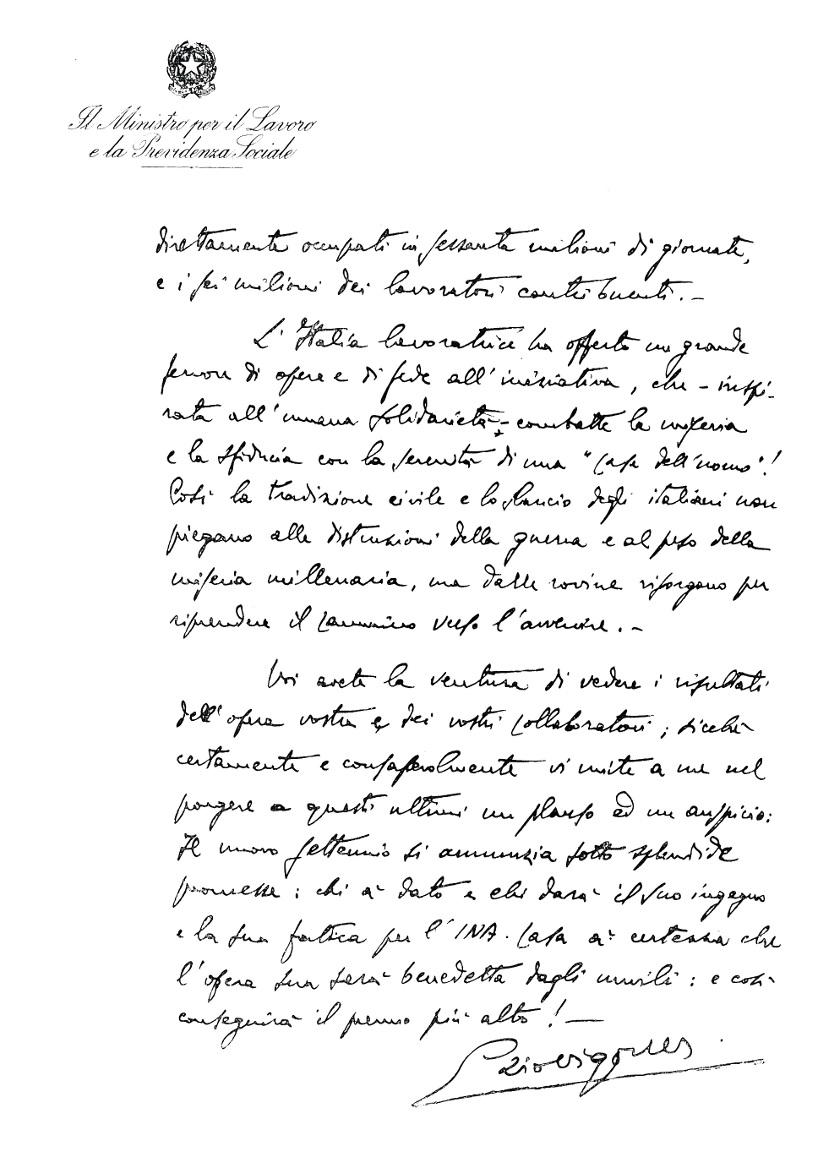 Il Ministro per il Lavoro
e la Previdenza Sociale
direttamente occupati in sessanta milioni di giornate,
e i sei milioni dei lavoratori contribuenti. –
L'Italia lavoratrice ha offerto un grande
fervore di opere e di fede all'iniziativa, che – inspi-
rata all'umana solidarietà – combatte la miseria
e la sfiducia con la serenità di una "Casa dell'uomo"!
Così la tradizione civile e lo slancio degli italiani non
piegano alle distruzioni della guerra e al peso della
miseria millenaria, ma dalle rovine risorgono per
riprendere il cammino verso l'avvenire. –
Voi avete la ventura di vedere i risultati
dell'opera vostra e dei vostri collaboratori; sicché
certamente e consapevolmente vi unite a me nel
porgere a questi ultimi un plauso ed un auspicio:
Il nuovo settennio si annunzia sotto splendide
promesse: chi à dato e chi darà il suo ingegno
e la sua fatica per l'INA-Casa à certezza che
l'opera sua sarà benedetta dagli umili: e così
conseguirà il premio più alto! –